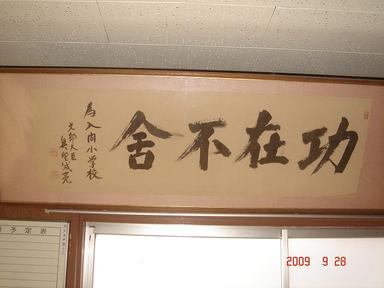 功在不舍
為入間小学校
文部大臣
奥野誠亮
予定表
2009 9 28